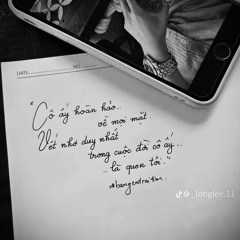 DATE NO.
"Cô ấy hoàn hảo..
về mọi mặt.
Vết nhơ duy nhất
trong cuộc đời cô ấy..
..là quen tôi."
@_longlee.11